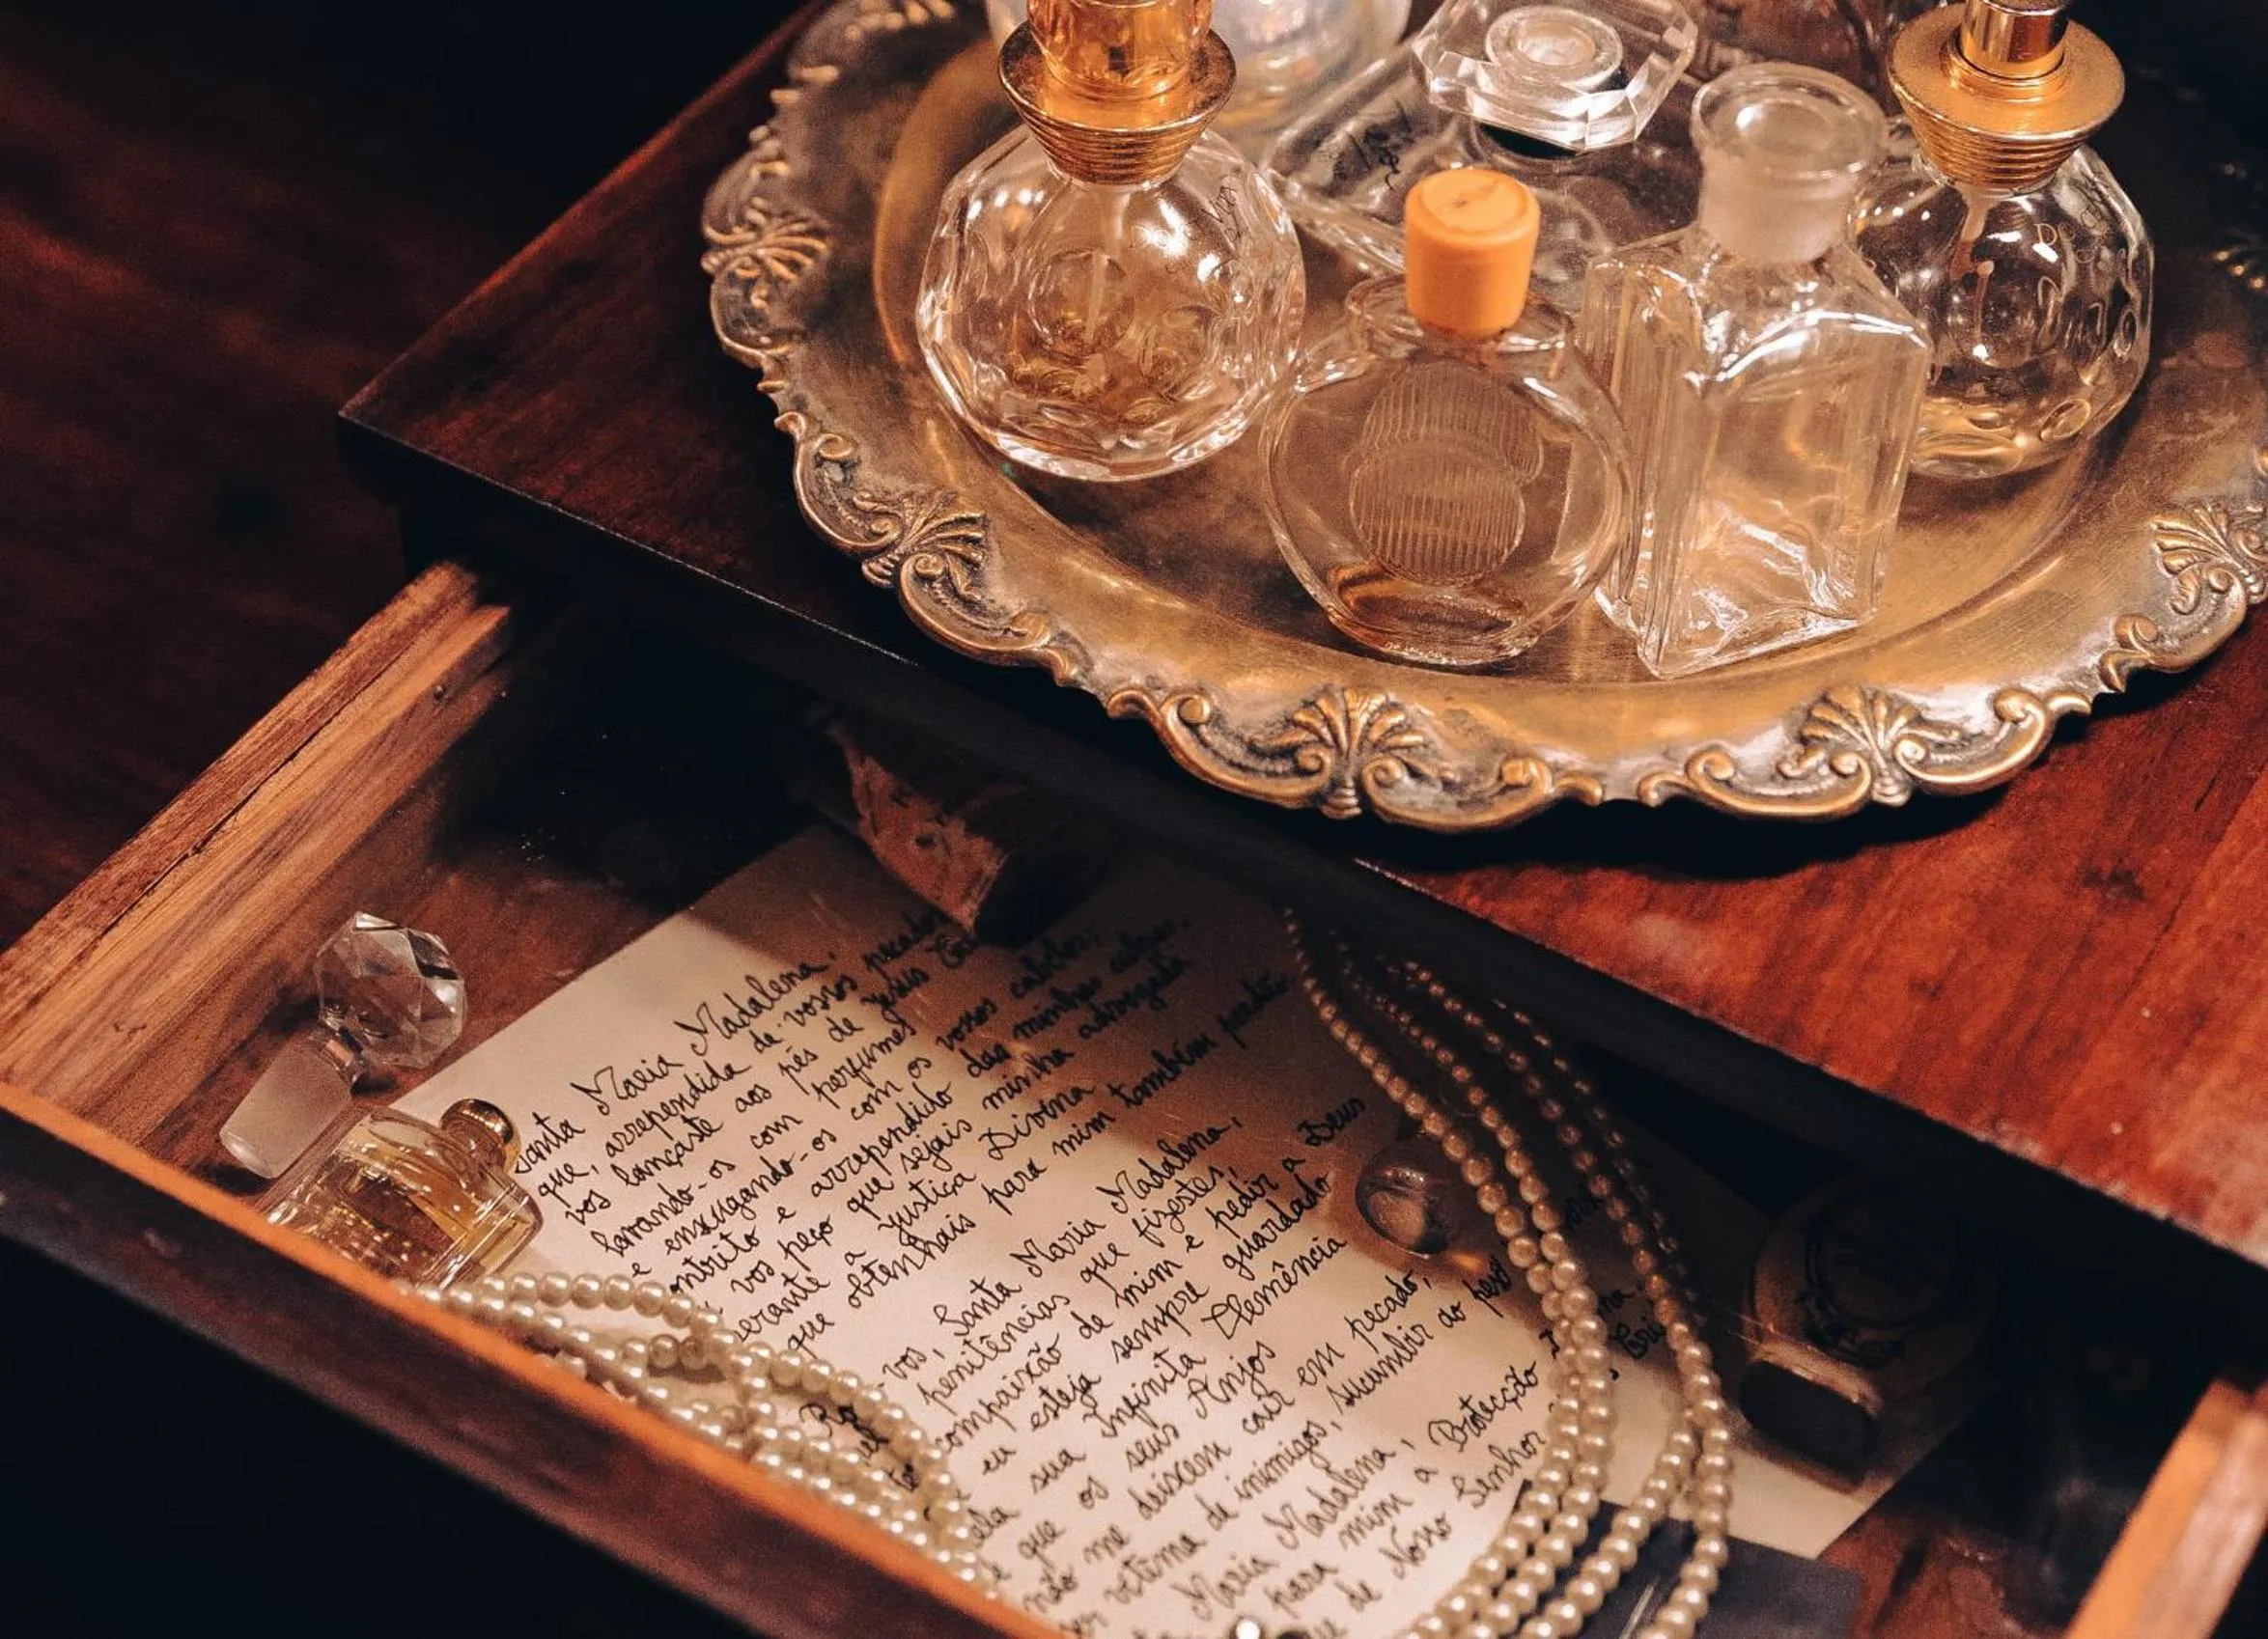 Santa Maria Madalena,
que, arrependida de vossos pecados
vos lançaste aos pés de Jesus
lavando-os com perfumes
e enxugando-os com os vossos cabelos,
contrito e arrependido das minhas culpas,
vos peço que sejais minha advogada
perante a Justiça Divina
que obtenhais para mim também perdão
vós, Santa Maria Madalena,
penitências que fizestes,
compaixão de mim e pedir a Deus
eu esteja sempre guardado
sua Infinita Clemência
e que os seus Anjos
não me deixem cair em pecado,
vítima de inimigos, sucumbir ao peso
Maria Madalena,
para mim a Protecção
de Nosso Senhor